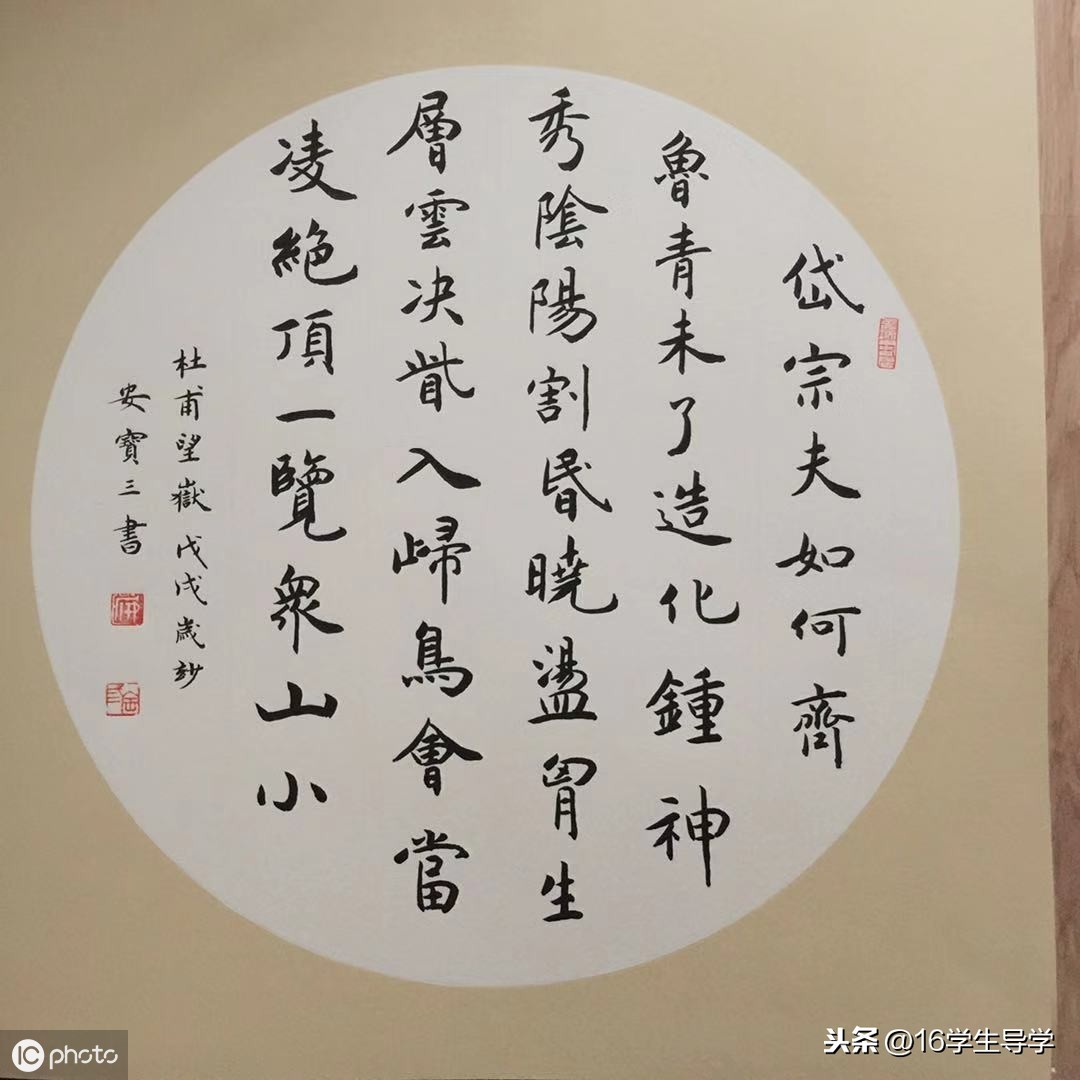 岱宗夫如何齊
魯青未了造化鍾神
秀陰陽割昬曉盪胷生
層雲决眥入歸鳥會當
凌絕頂一覽衆山小
杜甫望嶽戊戌歲杪
安寶三書
IC photo
头条 @16学生导学